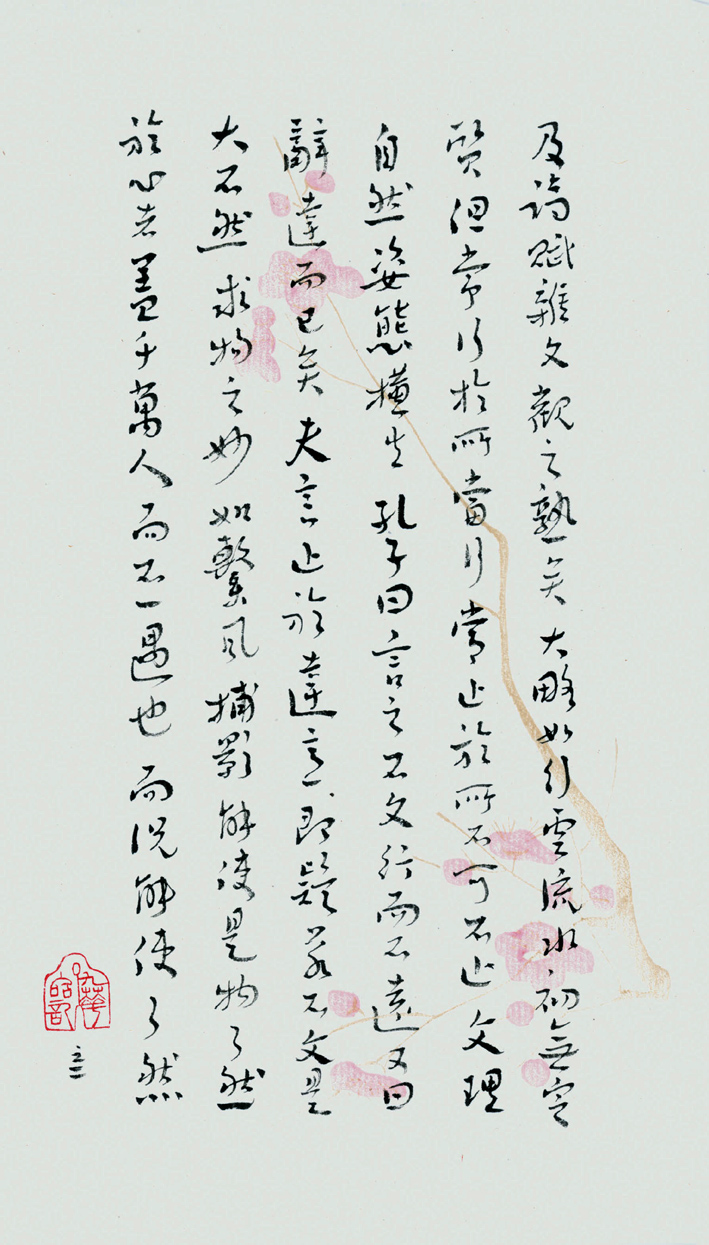 及詩賦雜文觀之熟矣大略如行雲流水初無定
質但常行於所當行常止於所不可不止文理
自然姿態橫生孔子曰言之不文行而不遠又曰
辭達而已矣夫言止於達意即疑若不文是
大不然求物之妙如繫風捕影能使是物了然
於心者蓋千萬人而不一遇也而況能使了然